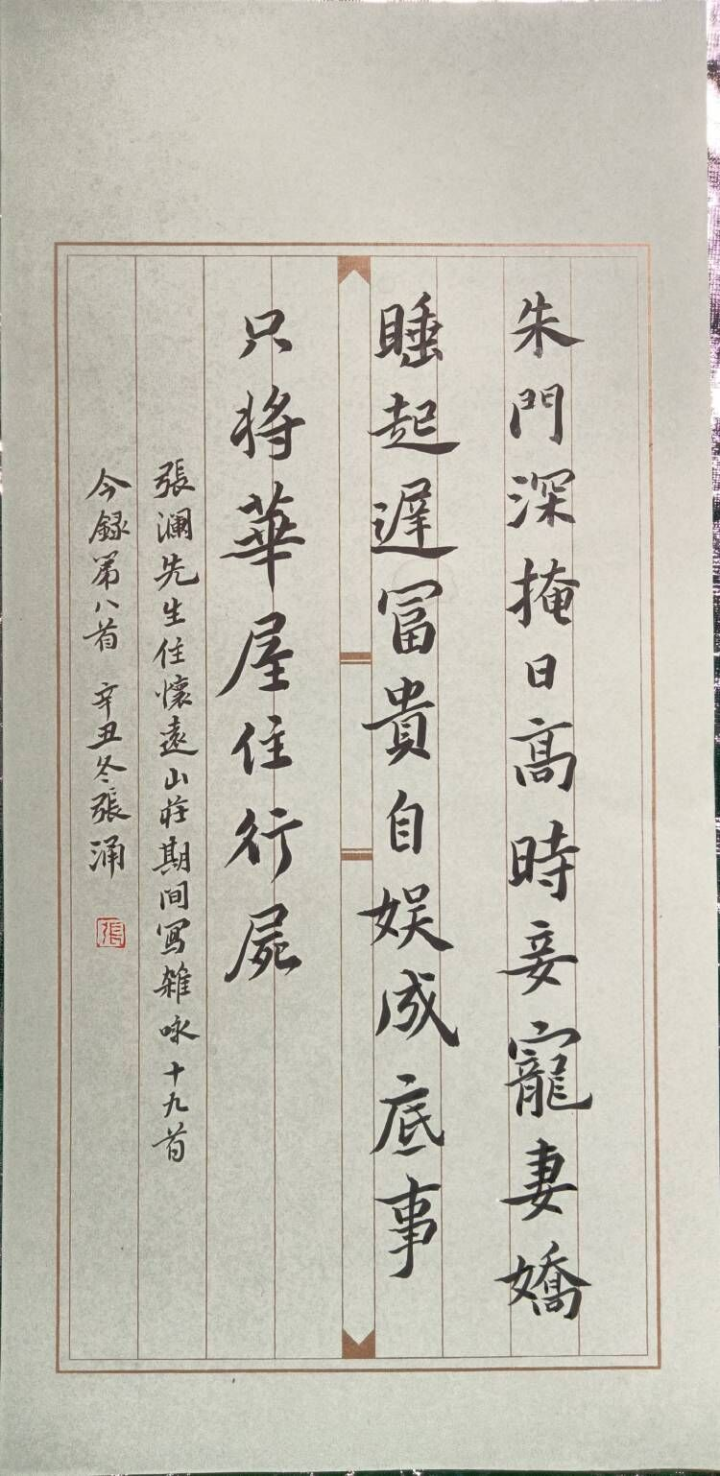 朱門深掩日高時妾寵妻嬌
睡起遲冨貴自娱成底事
只将華屋住行屍
張澜先生住懷遠山莊期间寫雜咏十九首
今録第八首 辛丑冬張涌
張